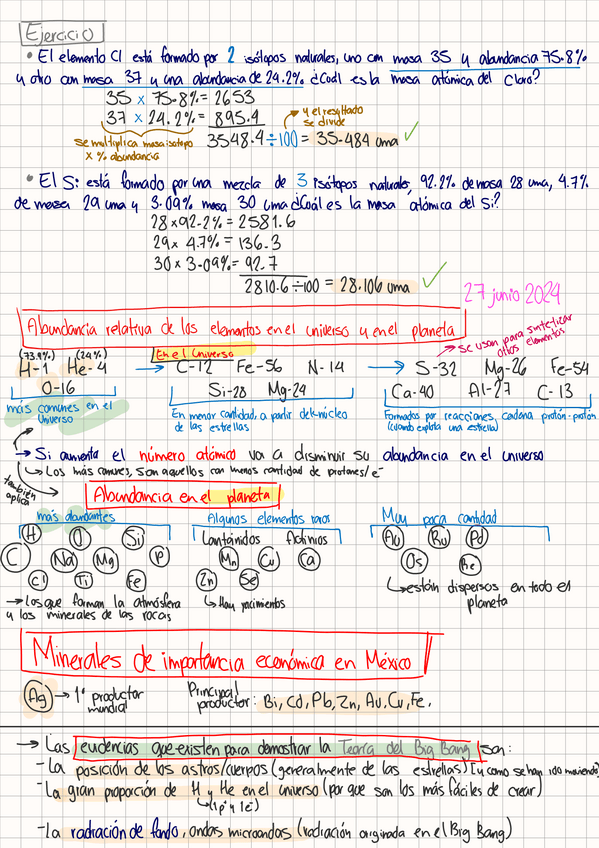 Ejercicio
• El elemento Cl está formado por 2 isótopos naturales, uno con masa 35 y abundancia 75.8%
y otro con masa 37 y una abundancia de 24.2% ¿Cuál es la masa atómica del Cloro?
35 x 75.8% = 2653
37 x 24.2% = 895.4
3548.4 ÷100 = 35.484 uma ✓
y el resultado
se divide
se multiplica masa isótopo
x % abundancia
• El S: está formado por una mezcla de 3 isótopos naturales, 92.2% de masa 28 uma, 4.7%
de masa 29 uma y 3.09% masa 30 uma ¿Cuál es la masa atómica del Si?
28 x 92.2% = 2581.6
29 x 4.7% = 136.3
30 x 3.09% = 92.7
2810.6 ÷100 = 28.106 uma ✓
27 junio 2024
Abundancia relativa de los elementos en el universo y en el planeta
→ se usan para sintetizar
otros elementos
(73.9%) (24%)
En el Universo
H-1 He-4 → C-12 Fe-56 N-14 → S-32 Mg-26 Fe-54
O-16 Si-28 Mg-24 Ca-40 Al-27 C-13
más comunes en el
Universo
En menor cantidad, a partir del núcleo
de las estrellas
Formados por reacciones, cadena protón-protón
(cuando explota una estrella)
→ Si aumenta el número atómico va a disminuir su abundancia en el universo
↳ Los más comunes, son aquellos con menos cantidad de protones/e⁻
también
aplica
Abundancia en el planeta
más abundantes Algunos elementos raros Muy poca cantidad
H O Si Lantánidos Actinios Au Ru Pd
C Na Mg P Mn Cu Ca Os Re
Cl Ti Fe Zn Se
→ los que forman la atmósfera
y los minerales de las rocas
↳ Hay yacimientos
↳ están dispersos en todo el
planeta
Minerales de importancia económica en México
Ag → 1° productor
mundial
Principal
productor: Bi, Cd, Pb, Zn, Au, Cu, Fe.
→ Las evidencias que existen para demostrar la Teoría del Big Bang son:
- La posición de los astros/cuerpos (generalmente de las estrellas) [y como se han ido moviendo]
- La gran proporción de H y He en el universo (por que son los más fáciles de crear)
↳ (1p⁺ y 1e⁻)
- La radiación de fondo, ondas microondas (radiación originada en el Big Bang)